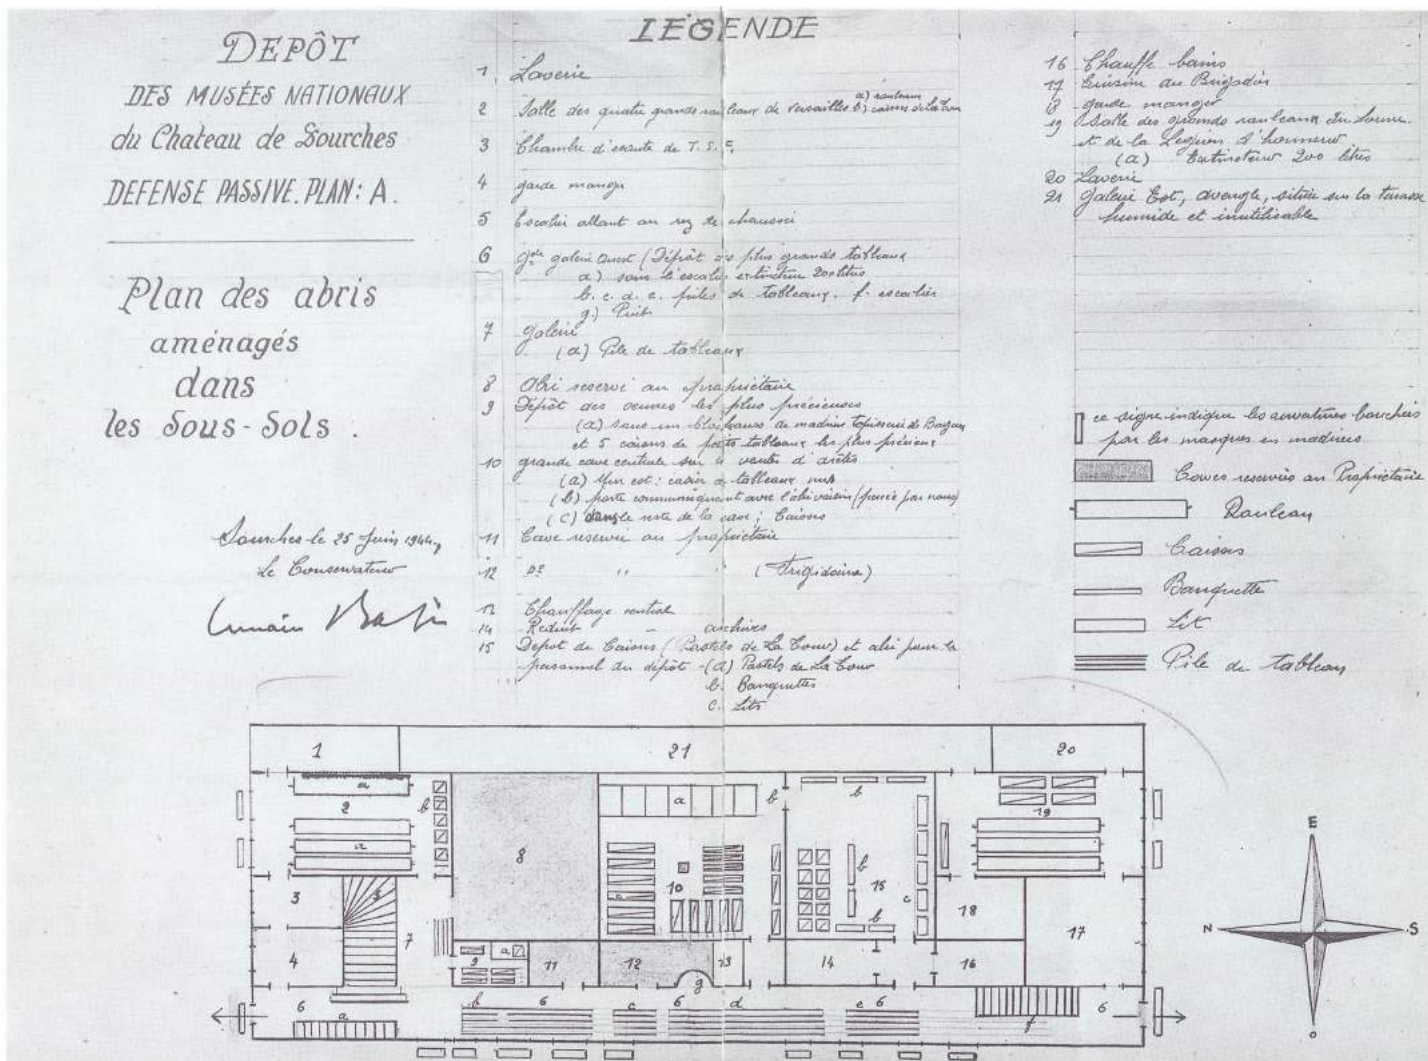 DEPÔT
DES MUSÉES NATIONAUX
du Chateau de Sourches
DEFENSE PASSIVE. PLAN: A.
Plan des abris
aménagés
dans
les Sous-Sols.
Sourches le 25 Juin 1944,
Le Conservateur
LEGENDE
1 Laverie
2 Salle des quatre grands rouleaux de Versailles a) rouleaux b) caisses de La Tour
3 Chambre d'écoute de T.S.F.
4 garde manger
5 Escalier allant au rez de chaussée
6 gde galerie Ouest (Dépôt des plus grands tableaux
a) sous l'escalier extincteur 200 litres
b. c. d. e. piles de tableaux. f. escalier
g.) Puit
7 Galerie
(a) Pile de tableaux
8 Abri reservé au propriétaire
9 Dépôt des oeuvres les plus précieuses
(a) dans un blockhauss de madriers tapisserie de Bayeux
et 5 caisses de petits tableaux les plus précieux
10 grande cave centrale sur 4 voutes d'arêtes
(a) Mur est: casier à tableaux nus
(b) porte communiquant avec l'abri voisin (percée par nous)
(c) dans le reste de la cave; Caisses
11 Cave reservée au propriétaire
12 do " (Frigidaire)
13 Chauffage central
14 Réduit - archives
15 Depot de Caisses (Pastels de La Tour) et abri pour le
personnel du dépôt - (a) Pastels de La Tour
b. Banquettes
c. Lits
16 Chauffe bains
17 Cuisine du Brigadier
18 garde manger
19 Salle des grands rouleaux du Louvre
et de la Legion d'honneur
(a) Extincteur 200 litres
20 Laverie
21 Galerie Est, aveugle, située sur la terrasse
humide et inutilisable
ce signe indique les ouvertures bouchées
par les masques en madriers
Caves reservées au Propriétaire
Rouleau
Caisses
Banquette
Lit
Pile de tableaux
1 21 20
a b a b b 19
2
a 8 c 10 b 15 c
3 5 b 18
7 17
4 9 a 11 12 13 14 16
g
6 b 6 c 6 d e 6 6
a f
E
N S
O